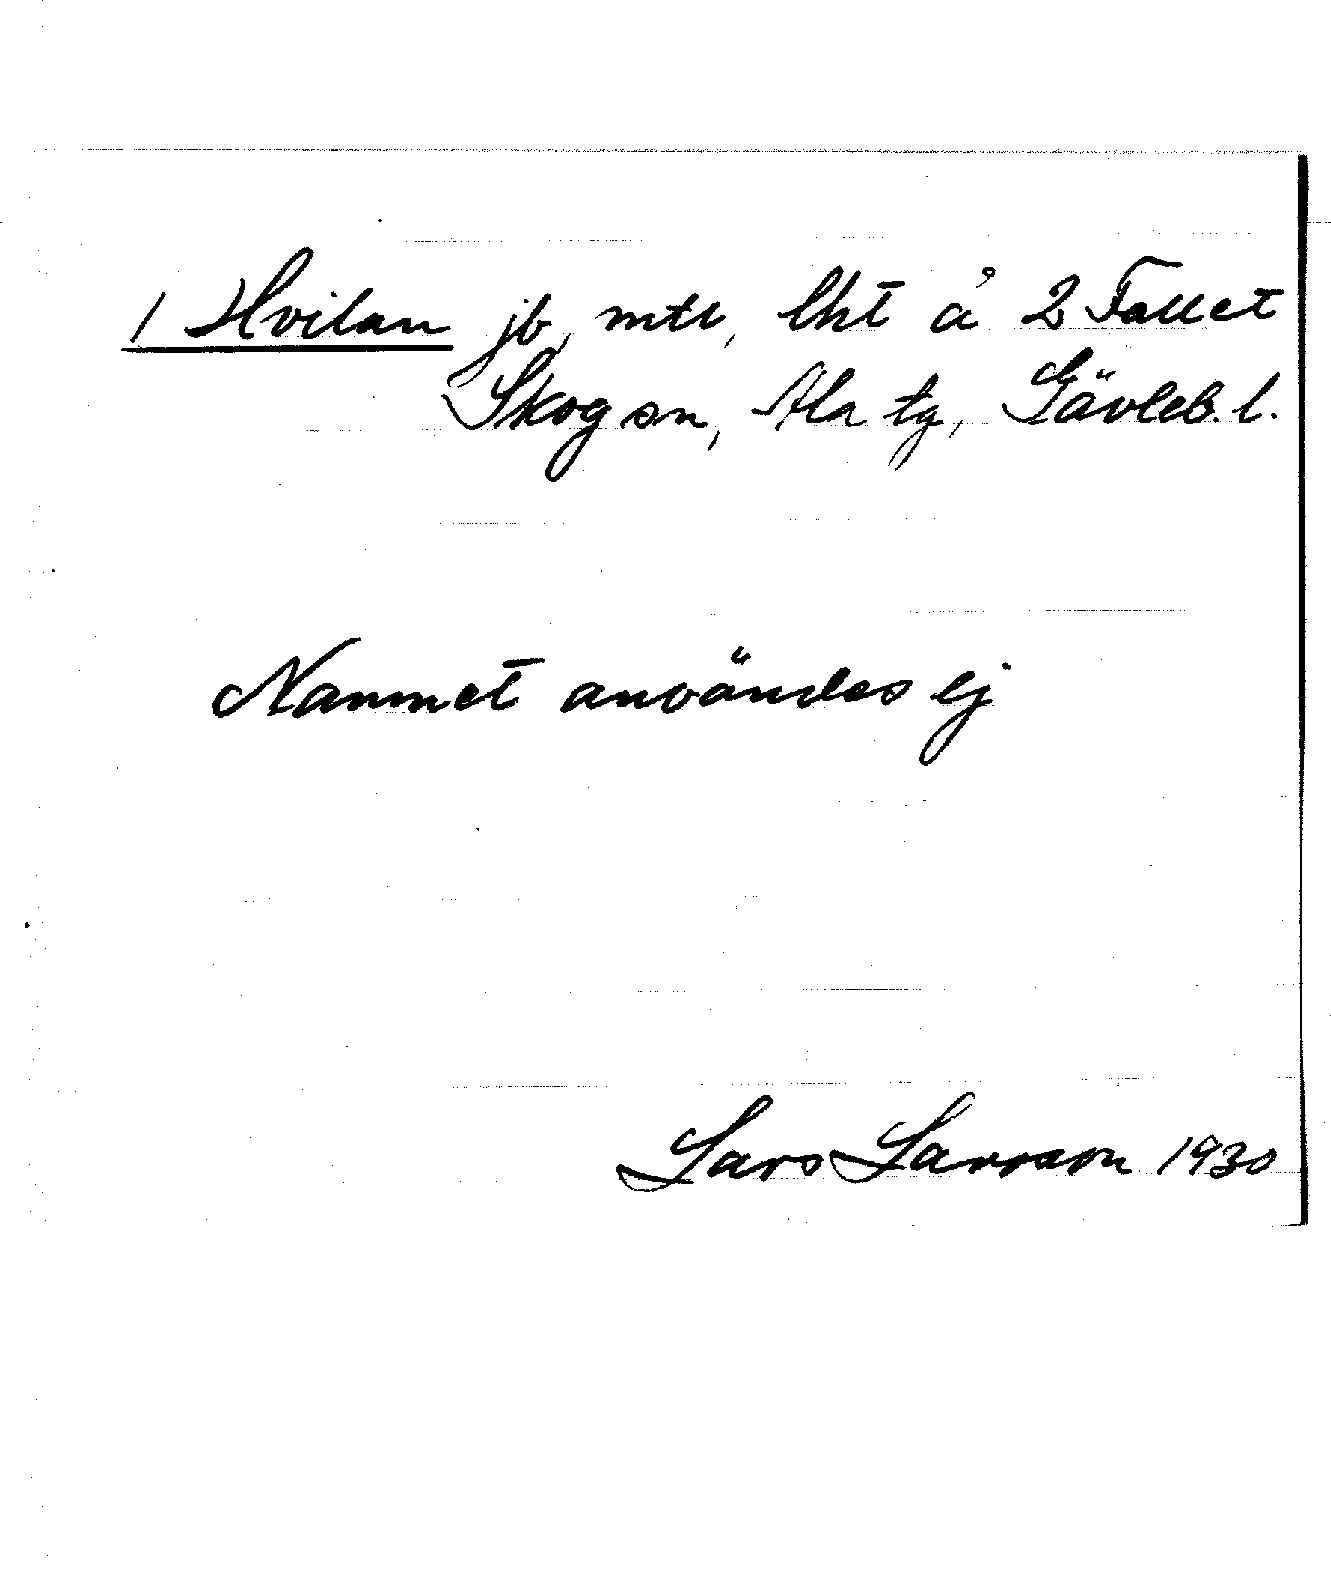 1 Hvilan jb, mtl, lht å 2 Fallet
Skog sn, Ala tg, Gävleb. l.
Namnet användes ej
Lars Larsson 1930